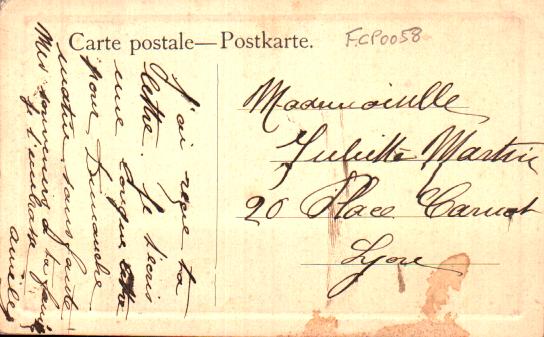 Carte postale—Postkarte.
F.CP0058
J'ai reçu ta
lettre. Je t'écris
une longue lettre
pour Dimanche
matin, sans faute
Mes souvenirs à ta famille
Je t'embrasse
Mademoiselle
Juliette Martin
20 Place Carnot
Lyon